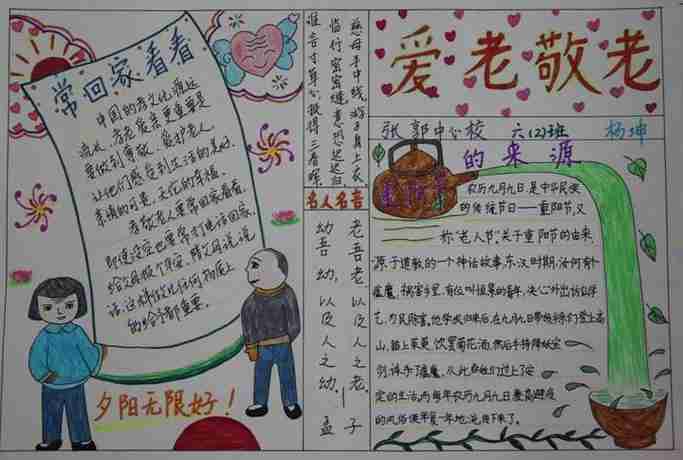 常回家看看
中国的孝文化源远
流长,孝老爱亲更重要是
要做到尊敬、爱护老人,
让他们感受到生活的美好,
亲情的可贵,天伦的幸福。
孝敬老人要常回家看看,
即使没空也要常打电话回家,
给父母报个平安,陪父母说说
话,这样做比任何物质上
的给予都重要。
夕阳无限好!
慈母手中线,游子身上衣。
临行密密缝,意恐迟迟归。
谁言寸草心,报得三春晖。
名人名言
老吾老以及人之老,
幼吾幼以及人之幼。
孟子
爱老敬老
张郭中心校 六(2)班 杨坤
重阳节的来源
农历九月九日是中华民族
的传统节日——重阳节,又
称“老人节”。关于重阳节的由来,
源于道教的一个神话故事:东汉时期,汝河有个
瘟魔,祸害乡里,有位叫恒景的青年,决心外出访仙学
艺,为民除害。他学成归来后,在九月九日带领乡亲们登上高
山,插上茱萸,饮罢菊花酒,然后手持降妖宝
剑,降予了瘟魔。从此乡亲们过上了安
定的生活,而每年农历九月九日登高避疫
的风俗便年复一年地流传下来了。